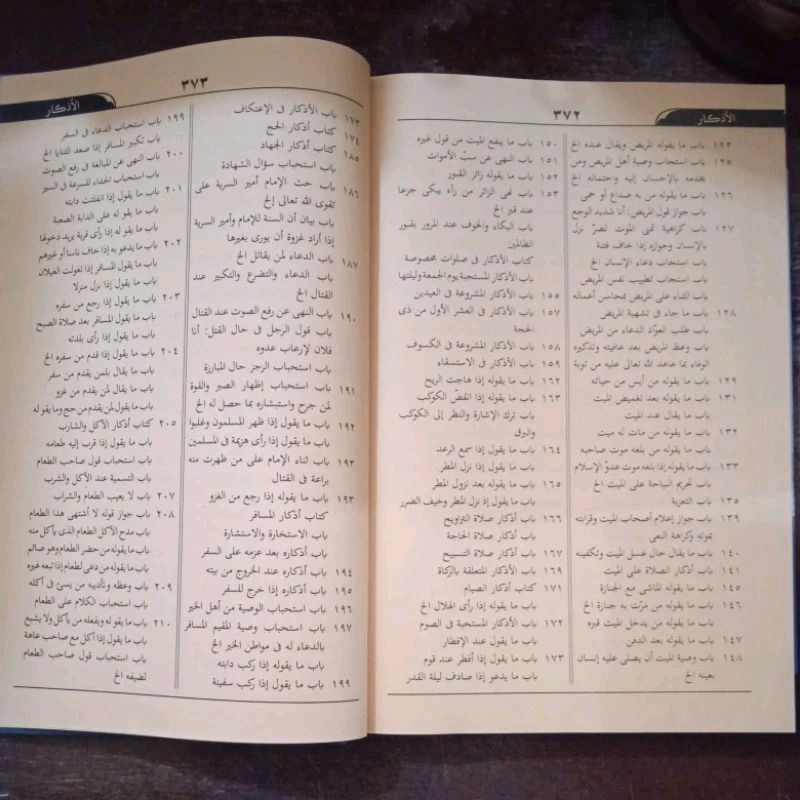 الأذكار
٣٧٢
١٢٤ باب ما يقوله المريض ويقال عنده الخ
١٢٥ باب استحباب وصية أهل المريض ومن
يخدمه بالإحسان إليه واحتماله الخ
١٢٦ باب ما يقوله من به صداع أو حمى
باب جواز قول المريض: أنا شديد الوجع
١٢٧ باب كراهية تمنى الموت لضرّ نزل
بالإنسان وجوازه إذا خاف فتنة
باب استحباب دعاء الإنسان الخ
باب استحباب تطييب نفس المريض
باب الثناء على المريض بمحاسن أعماله
١٢٨ باب ما جاء فى تشهية المريض
باب طلب العوّاد الدعاء من المريض
باب وعظ المريض بعد عافيته وتذكيره
الوفاء بما عاهد الله تعالى عليه من توبة
١٢٩ باب ما يقوله من أيس من حياته
١٣١ باب ما يقوله بعد تغميض الميت
باب ما يقال عند الميت
١٣٢ باب ما يقوله من مات له ميت
باب ما يقوله من بلغه موت صاحبه
١٣٣ باب ما يقوله إذا بلغه موت عدوّ الإسلام
باب تحريم النياحة على الميت الخ
١٣٥ باب التعزية
١٣٩ باب جواز إعلام أصحاب الميت وقرابته
بموته وكراهة النعى
١٤٠ باب ما يقال حال غسل الميت وتكفينه
١٤١ باب أذكار الصلاة على الميت
١٤٥ باب ما يقوله الماشى مع الجنازة
١٤٦ باب ما يقوله من مرّت به جنازة الخ
باب ما يقوله من يدخل الميت قبره
١٤٧ باب ما يقوله بعد الدفن
١٤٨ باب وصية الميت أن يصلى عليه إنسان
بعينه الخ
١٥٠ باب ما ينفع الميت من قول غيره
١٥١ باب النهى عن سبّ الأموات
١٥٢ باب ما يقوله زائر القبور
١٥٣ باب نهى الزائر من رآه يبكى جزعا
عند قبر الخ
باب البكاء والخوف عند المرور بقبور
الظالمين
كتاب الأذكار فى صلوات مخصوصة
باب الأذكار المستحبة يوم الجمعة وليلتها
١٥٥ باب الأذكار المشروعة فى العيدين
١٥٧ باب الأذكار فى العشر الأول من ذى
الحجة
١٥٨ باب الأذكار المشروعة فى الكسوف
١٥٩ باب الأذكار فى الاستسقاء
١٦٢ باب ما يقوله إذا هاجت الريح
١٦٣ باب ما يقول إذا انقضّ الكوكب
باب ترك الإشارة والنظر إلى الكوكب
والبرق
١٦٤ باب ما يقول إذا سمع الرعد
باب ما يقوله إذا نزل المطر
١٦٥ باب ما يقوله بعد نزول المطر
باب ما يقول إذ نزل المطر وخيف الضرر
١٦٦ باب أذكار صلاة التراويح
باب أذكار صلاة الحاجة
١٦٧ باب أذكار صلاة التسبيح
١٦٩ باب الأذكار المتعلقة بالزكاة
١٧١ كتاب أذكار الصيام
باب ما يقوله إذا رأى الهلال الخ
١٧٢ باب الأذكار المستحبة فى الصوم
باب ما يقول عند الإفطار
١٧٣ باب ما يقول إذا أفطر عند قوم
باب ما يدعو إذا صادف ليلة القدر
٣٧٣
الأذكار
١٧٣ باب الأذكار فى الإعتكاف
١٧٤ كتاب أذكار الحج
١٨٥ كتاب أذكار الجهاد
باب استحباب سؤال الشهادة
١٨٦ باب حث الإمام أمير السرية على
تقوى الله تعالى إلخ
باب بيان أن السنة للإمام وأمير السرية
إذا أراد غزوة أن يورى بغيرها
باب الدعاء لمن يقاتل الخ
١٨٧ باب الدعاء والتضرع والتكبير عند
القتال الخ
١٩٠ باب النهى عن رفع الصوت عند القتال
باب قول الرجل فى حال القتل: أنا
فلان لإرعاب عدوه
باب استحباب الرجز حال المبارزة
١٩١ باب استحباب إظهار الصبر والقوة
لمن جرح واستبشاره بما حصل له الخ
١٩٢ باب ما يقول إذا ظهر المسلمون وغلبوا
باب ما يقول إذا رأى هزيمة فى المسلمين
١٩٣ باب ثناء الإمام على من ظهرت منه
براعة فى القتال
١٩٣ باب ما يقوله إذا رجع من الغزو
كتاب أذكار المسافر
باب الاستخارة والاستشارة
باب أذكاره بعد عزمه على السفر
١٩٤ باب أذكاره عند الخروج من بيته
١٩٥ باب أذكاره إذا خرج للسفر
١٩٦ باب استحباب الوصية من أهل الخير
١٩٧ باب استحباب وصية المقيم المسافر
بالدعاء له فى مواطن الخير الخ
باب ما يقوله إذا ركب دابته
١٩٩ باب ما يقول إذا ركب سفينة
١٩٩ باب استحباب الدعاء فى السفر
باب تكبير المسافر إذا صعد الثنايا الخ
٢٠٠ باب النهى عن المبالغة فى رفع الصوت
باب استحباب الحداء للسرعة فى السير
٢٠١ باب ما يقول إذا انفلتت دابته
باب ما يقوله على الدابة الصعبة
باب ما يقوله إذا رأى قرية يريد دخولها
٢٠٢ باب ما يدعو به إذا خاف ناسا أو غيرهم
باب ما يقول المسافر إذا تغولت الغيلان
باب ما يقول إذا نزل منزلا
٢٠٣ باب ما يقول إذا رجع من سفره
باب ما يقول المسافر بعد صلاة الصبح
باب ما يقول إذا رأى بلدته
٢٠٤ باب ما يقول إذا قدم من سفره الخ
باب ما يقال بلمن يقدم من سفر
باب ما يقال لمن يقدم من غزو
باب ما يقول لمن يقدم من حج وما يقوله
٢٠٥ كتاب أذكار الأكل والشارب
باب ما يقول إذا قرب إليه طعامه
باب استحباب قول صاحب الطعام
باب التسمية عند الأكل والشرب
٢٠٧ باب لا يعيب الطعام والشراب
٢٠٨ باب جواز قوله لا أشتهى هذا الطعام
باب مدح الآكل الطعام الذى يأكل منه
باب ما يقوله من حضر الطعام وهو صائم
باب ما يقوله من دعى لطعام إذا تبعه غيره
٢٠٩ باب وعظه وتأديبه من يسئ فى أكله
باب استحباب الكلام على الطعام
٢١٠ باب ما يقوله ويفعله من يأكل ولا يشبع
باب ما يقول إذا أكل مع صاحب عاهة
باب استحباب قول صاحب الطعام
لضيفه الخ